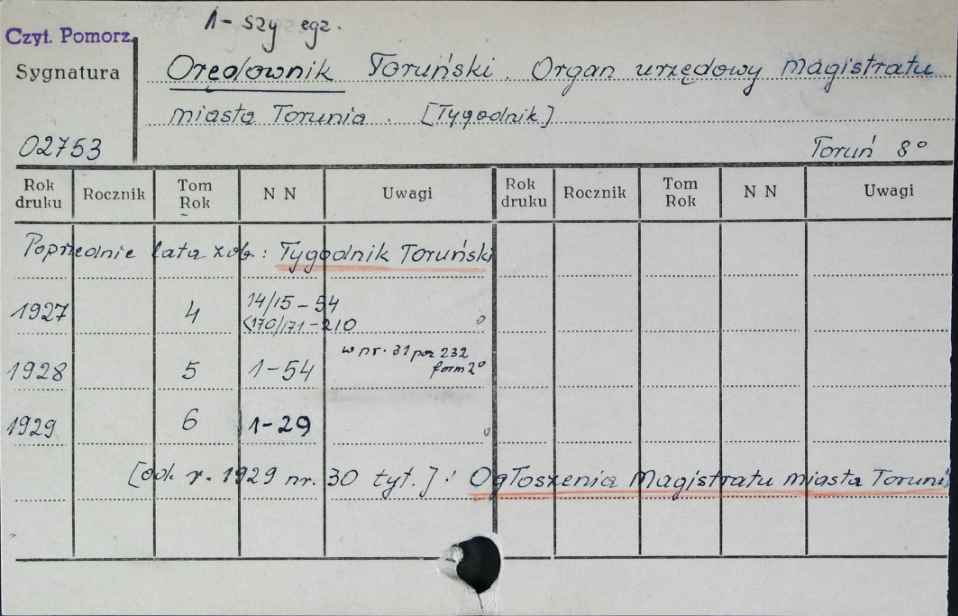 1-szy egz.
Czyt. Pomorz.
Sygnatura
Orędownik Toruński. Organ urzędowy magistratu
miasta Torunia. [Tygodnik]
02753 Toruń 8°
Rok druku Rocznik Tom Rok N N Uwagi Rok druku Rocznik Tom Rok N N Uwagi
Poprzednie lata zob: Tygodnik Toruński
1927 4 14/15-54
(170/171-210
w nr. 31 poz 232
1928 5 1-54 form 2°
1929 6 1-29
[od r. 1929 nr. 30 tyt.]: Ogłoszenia Magistratu miasta Toruni